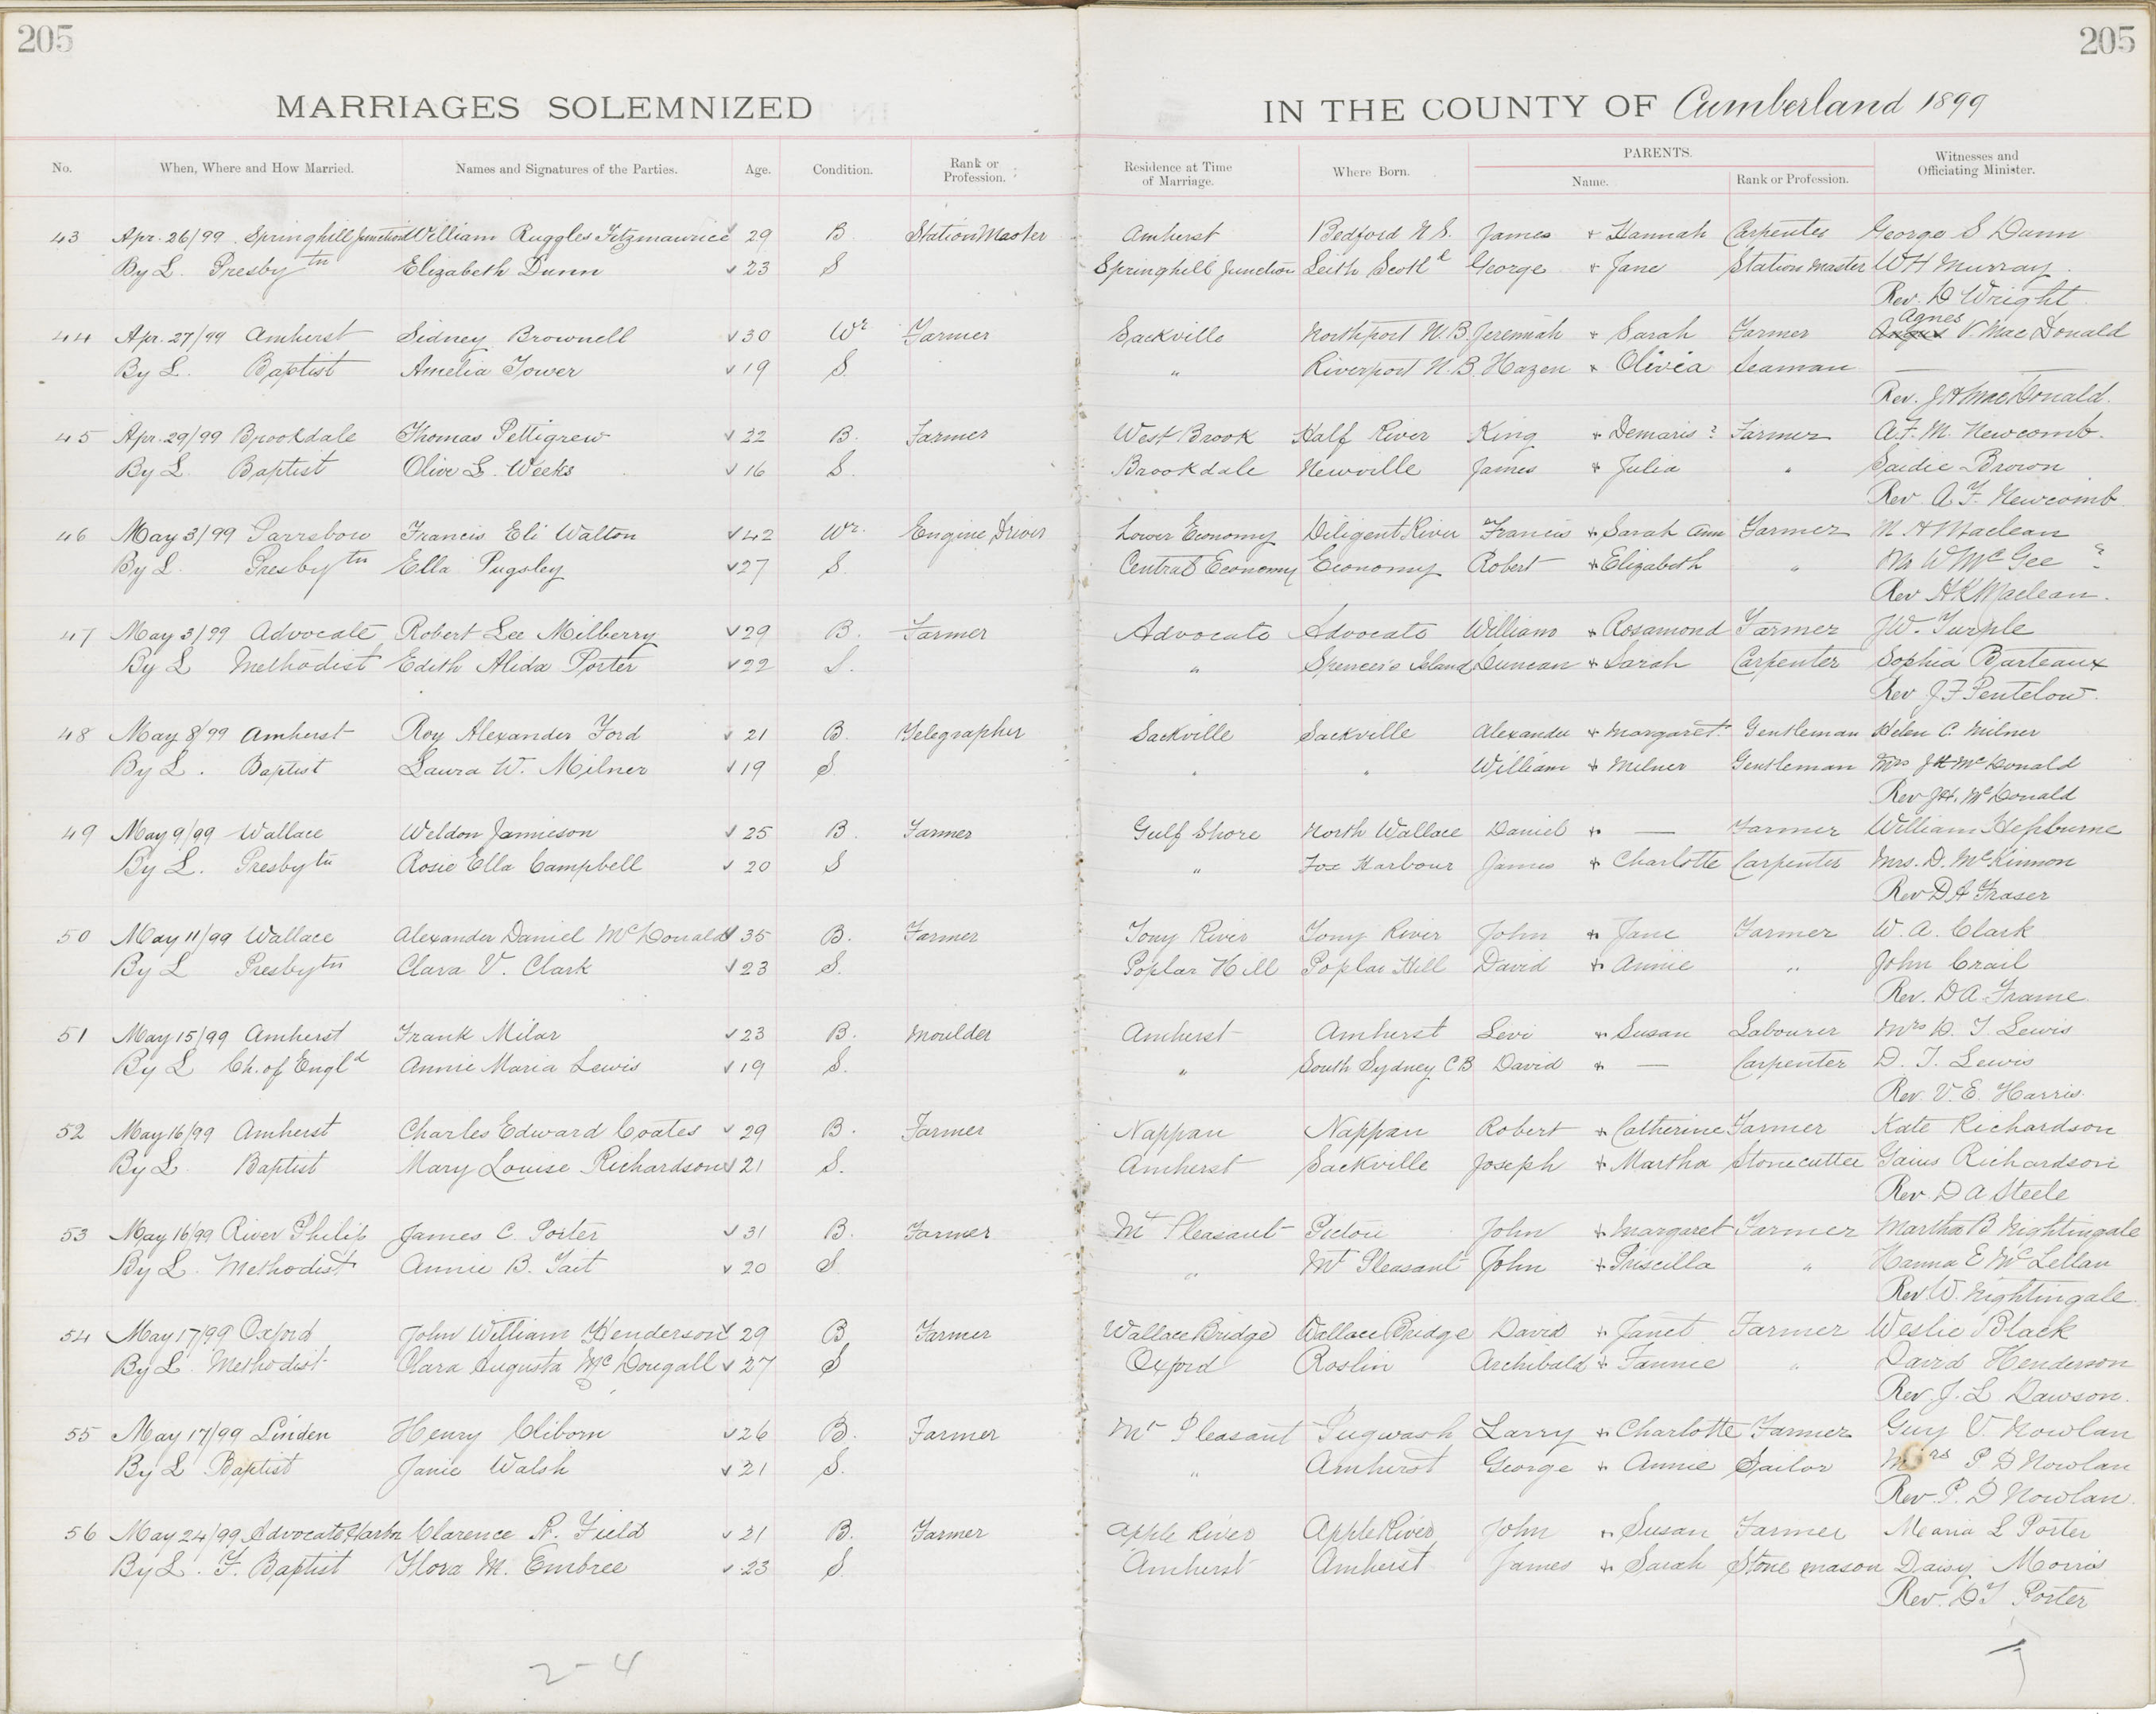 205
205
MARRIAGES SOLEMNIZED
IN THE COUNTY OF Cumberland 1899
No. When, Where and How Married. Names and Signatures of the Parties. Age. Condition. Rank or Profession. Residence at Time of Marriage. Where Born. PARENTS. Name. Rank or Profession. Witnesses and Officiating Minister.
43 Apr. 26/99 Springhill Junction William Ruggles Fitzmaurice 29 B Station Master Amherst Bedford N.S. James + Hannah Carpenter George S Dunn
By L. Presbytn Elizabeth Dunn 23 S Springhill Junction Leith Scotld George + Jane Station Master W H Murray
Rev. D Wright
44 Apr. 27/99 Amherst Sidney Brownell 30 Wr Farmer Sackville Northport N.B. Jeremiah + Sarah Farmer Agnes V. MacDonald
By L. Baptist Amelia Tower 19 S " Riverport N.B. Hazen + Olivia Seaman —
Rev. J H MacDonald.
45 Apr. 29/99 Brookdale Thomas Pettigrew 22 B. Farmer West Brook Half River King + Demaris ? Farmer A. F. M. Newcomb.
By L. Baptist Olive L. Weeks 16 S. Brookdale Newville James + Julia " Saidie Brown
Rev A. F. Newcomb
46 May 3/99 Parrsboro Francis Eli Walton 42 Wr. Engine Driver Lower Economy Diligent River Francis + Sarah Ann Farmer M. H Maclean
By L. Presbytn Ella Pugsley 27 S. Central Economy Economy Robert + Elizabeth " W McGee ?
Rev H K Maclean.
47 May 3/99 Advocate Robert Lee Milberry 29 B. Farmer Advocate Advocate William + Rosamond Farmer J. W. Turple
By L Methodist Edith Alida Porter 22 S. " Spencer's Island Duncan + Sarah Carpenter Sophia Barteaux
Rev J F Pentelow.
48 May 8/99 Amherst Roy Alexander Ford 21 B. Telegrapher Sackville Sackville Alexander + Margaret Gentleman Helen C. Milner
By L. Baptist Laura W. Milner 19 S " " William + Milner Gentleman Mrs J H McDonald
Rev J H. McDonald
49 May 9/99 Wallace Weldon Jamieson 25 B. Farmer Gulf Shore North Wallace Daniel + — Farmer William Hepburne
By L. Presbytn Rosie Ella Campbell 20 S " Fox Harbour James + Charlotte Carpenter Mrs. D. McKinnon
Rev D A Fraser
50 May 11/99 Wallace Alexander Daniel McDonald 35 B. Farmer Tony River Tony River John + Jane Farmer W. A. Clark
By L Presbytn Clara V. Clark 23 S. Poplar Hill Poplar Hill David + Annie " John Crail
Rev. D A Frame
51 May 15/99 Amherst Frank Milar 23 B. Moulder Amherst Amherst Levi + Susan Labourer Mrs D. T. Lewis
By L Ch. of Engld Annie Maria Lewis 19 S. " South Sydney C B David + — Carpenter D. T. Lewis
Rev. V. E. Harris.
52 May 16/99 Amherst Charles Edward Coates 29 B. Farmer Nappan Nappan Robert + Catherine Farmer Kate Richardson
By L Baptist Mary Louise Richardson 21 S. Amherst Sackville Joseph + Martha Stonecutter Gaius Richardson
Rev. D A Steele
53 May 16/99 River Philip James C. Porter 31 B. Farmer Mt Pleasant Pictou John + Margaret Farmer Martha B Nightingale
By L. Methodist Annie B. Tait 20 S " Mt Pleasant John + Priscilla " Hanna E McLellan
Rev W. Nightingale
54 May 17/99 Oxford John William Henderson 29 B Farmer Wallace Bridge Wallace Bridge David + Janet Farmer Weslie Black
By L Methodist Clara Augusta McDougall 27 S Oxford Roslin Archibald + Fannie " David Henderson
Rev J. L Dawson.
55 May 17/99 Linden Henry Cliborn 26 B. Farmer Mt Pleasant Pugwash Larry + Charlotte Farmer Guy V. Nowlan
By L Baptist Janie Walsh 21 S. " Amherst George + Annie Sailor Mrs P D Nowlan
Rev. P. D Nowlan.
56 May 24/99 Advocate Harbor Clarence R. Field 21 B. Farmer Apple River Apple River John + Susan Farmer Maria L Porter
By L. F. Baptist Flora M. Embree 23 S. Amherst Amherst James + Sarah Stone mason Daisy Morris
Rev. D T Porter
2-4